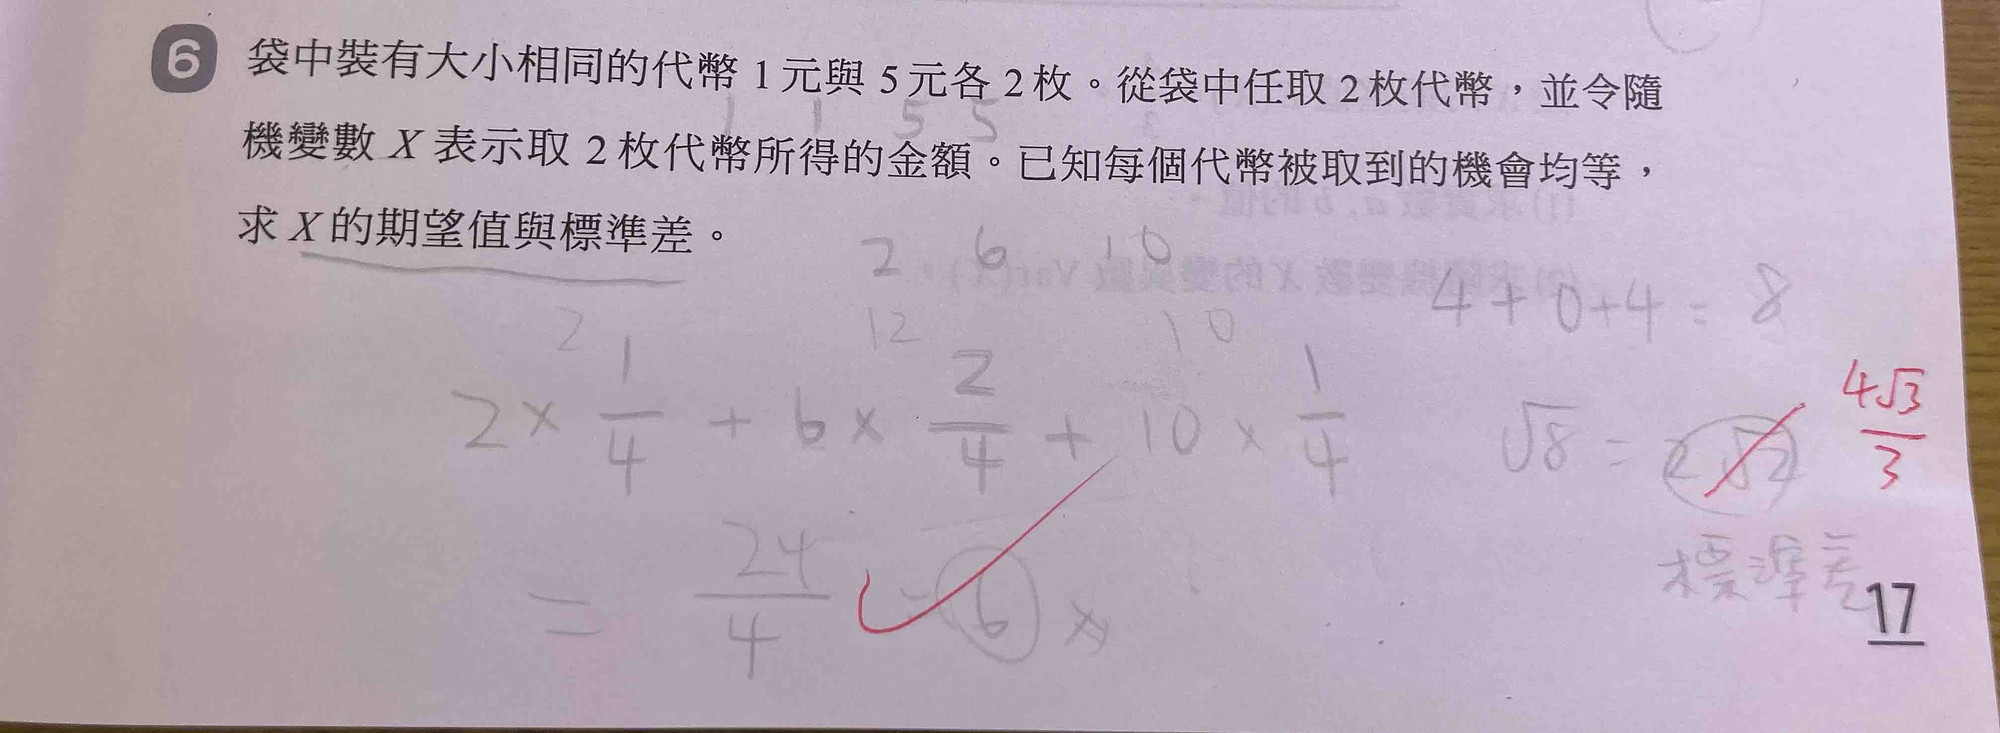 6 袋中裝有大小相同的代幣 1 元與 5 元各 2 枚。從袋中任取 2 枚代幣，並令隨
1 1 5 5
機變數 X 表示取 2 枚代幣所得的金額。已知每個代幣被取到的機會均等，
求 X 的期望值與標準差。
2 6 10
4+0+4=8
2 12 10
2×1/4+6×2/4+10×1/4
√8=2√2
4√3/3
=24/4=6
標準差
17